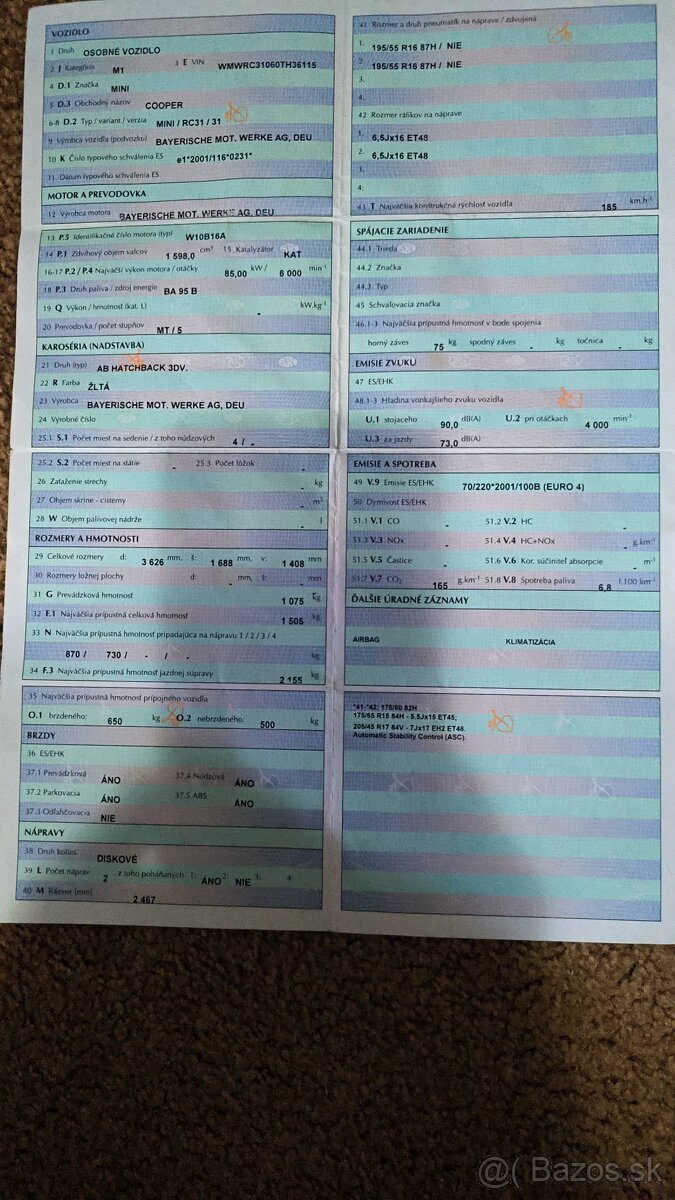 VOZIDLO
1 Druh OSOBNÉ VOZIDLO
2 J Kategória M1 3 E VIN WMWRC31060TH36115
4 D.1 Značka MINI
5 D.3 Obchodný názov COOPER
6-8 D.2 Typ / variant / verzia MINI / RC31 / 31
9 Výrobca vozidla (podvozku) BAYERISCHE MOT. WERKE AG, DEU
10 K Číslo typového schválenia ES e1*2001/116*0231*
11 Dátum typového schválenia ES
MOTOR A PREVODOVKA
12 Výrobca motora BAYERISCHE MOT. WERKE AG, DEU
13 P.5 Identifikačné číslo motora (typ) W10B16A
14 P.1 Zdvihový objem valcov 1 598,0 cm³ 15 Katalyzátor KAT
16-17 P.2 / P.4 Najväčší výkon motora / otáčky 85,00 kW / 6 000 min⁻¹
18 P.3 Druh paliva / zdroj energie BA 95 B
19 Q Výkon / hmotnosť (kat. L) - kW.kg⁻¹
20 Prevodovka / počet stupňov MT / 5
KAROSÉRIA (NADSTAVBA)
21 Druh (typ) AB HATCHBACK 3DV.
22 R Farba ŽLTÁ
23 Výrobca BAYERISCHE MOT. WERKE AG, DEU
24 Výrobné číslo
25.1 S.1 Počet miest na sedenie / z toho núdzových 4 / -
25.2 S.2 Počet miest na státie - 25.3 Počet lôžok -
26 Zaťaženie strechy - kg
27 Objem skrine - cisterny - m³
28 W Objem palivovej nádrže - l
ROZMERY A HMOTNOSTI
29 Celkové rozmery d: 3 626 mm, š: 1 688 mm, v: 1 408 mm
30 Rozmery ložnej plochy d: - mm, š: - mm
31 G Prevádzková hmotnosť 1 075 kg
32 F.1 Najväčšia prípustná celková hmotnosť 1 505 kg
33 N Najväčšia prípustná hmotnosť pripadajúca na nápravu 1 / 2 / 3 / 4
870 / 730 / - / - kg
34 F.3 Najväčšia prípustná hmotnosť jazdnej súpravy 2 155 kg
35 Najväčšia prípustná hmotnosť prípojného vozidla
O.1 brzdeného: 650 kg O.2 nebrzdeného: 500 kg
BRZDY
36 ES/EHK
37.1 Prevádzková ÁNO 37.4 Núdzová ÁNO
37.2 Parkovacia ÁNO 37.5 ABS ÁNO
37.3 Odľahčovacia NIE
NÁPRAVY
38 Druh kolies DISKOVÉ
39 L Počet náprav 2 z toho poháňaných 1: ÁNO 2: NIE 3: 4:
40 M Rázvor (mm) 2 467
41 Rozmer a druh pneumatík na náprave / zdvojená
1. 195/55 R16 87H / NIE
2. 195/55 R16 87H / NIE
3.
4.
42 Rozmer ráfikov na náprave
1. 6,5Jx16 ET48
2. 6,5Jx16 ET48
3.
4.
43 T Najväčšia konštrukčná rýchlosť vozidla 185 km.h⁻¹
SPÁJACIE ZARIADENIE
44.1 Trieda
44.2 Značka
44.3 Typ
45 Schvaľovacia značka
46.1-3 Najväčšia prípustná hmotnosť v bode spojenia
horný záves 75 kg spodný záves - kg točnica - kg
EMISIE ZVUKU
47 ES/EHK
48.1-3 Hladina vonkajšieho zvuku vozidla
U.1 stojaceho 90,0 dB(A) U.2 pri otáčkach 4 000 min⁻¹
U.3 za jazdy 73,0 dB(A)
EMISIE A SPOTREBA
49 V.9 Emisie ES/EHK 70/220*2001/100B (EURO 4)
50 Dymivosť ES/EHK
51.1 V.1 CO - 51.2 V.2 HC -
51.3 V.3 NOx - 51.4 V.4 HC+NOx - g.km⁻¹
51.5 V.5 Častice - 51.6 V.6 Kor. súčiniteľ absorpcie - m⁻¹
51.7 V.7 CO₂ 165 g.km⁻¹ 51.8 V.8 Spotreba paliva 6,8 l.100 km⁻¹
ĎALŠIE ÚRADNÉ ZÁZNAMY
AIRBAG KLIMATIZÁCIA
*41-*42: 175/60 82H
175/65 R15 84H - 5.5Jx15 ET45;
205/45 R17 84V - 7Jx17 EH2 ET48.
Automatic Stability Control (ASC).
@( Bazos.sk